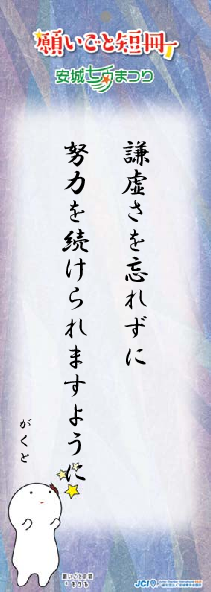 願いごと短冊
安城七夕まつり
謙虚さを忘れずに
努力を続けられますように
がくと
JCI